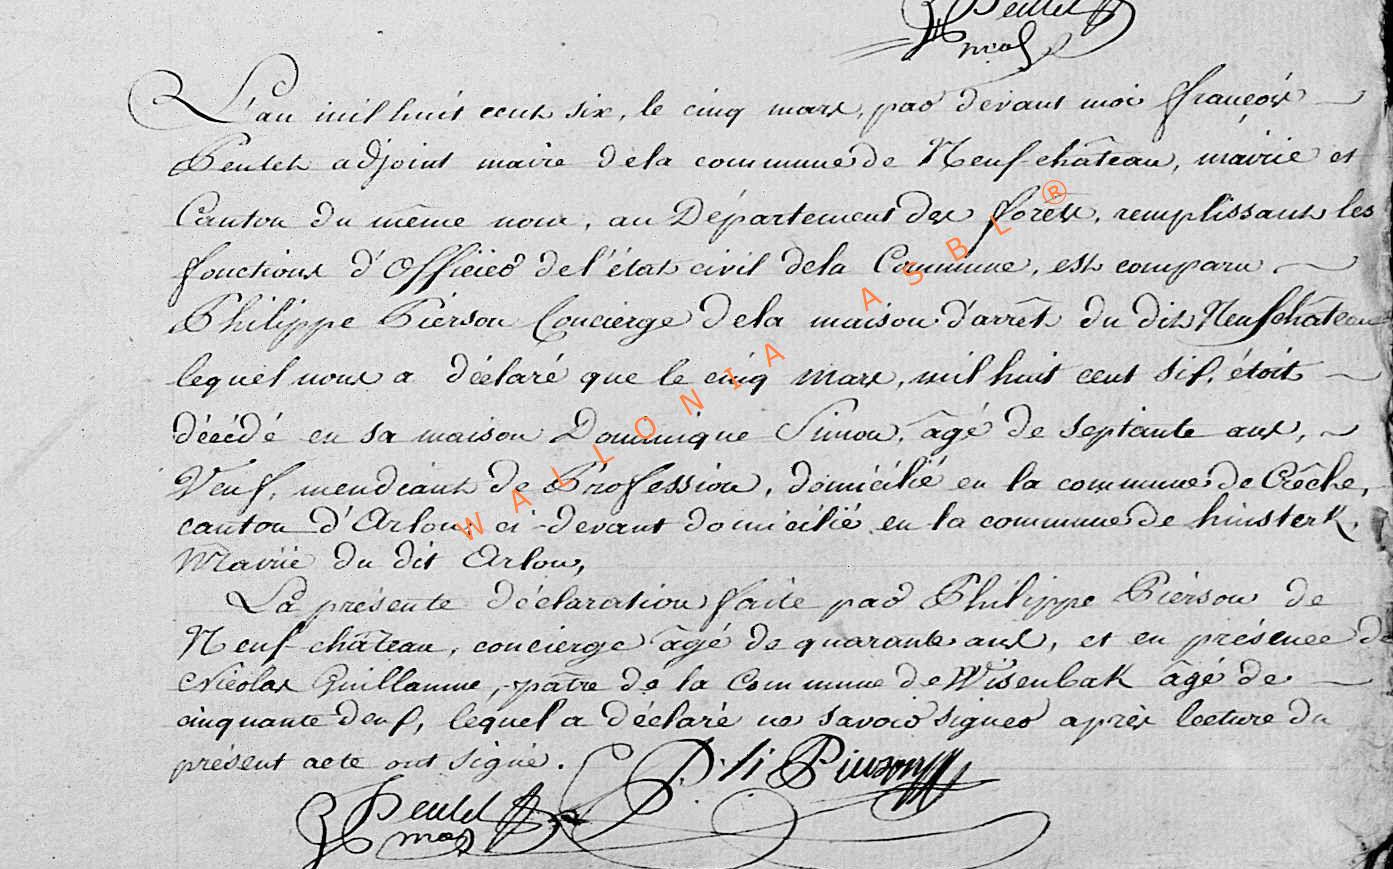 Peultet
L'an mil huit cent six, le cinq mars, par devant moi françois
Peultet adjoint maire dela commune de Neufchâteau, mairie et
Canton du même nom, au Département des forêts, remplissant les
fonctions d'Officier de l'état civil dela Commune, est comparu
Philippe Pierson Concierge dela maison d'arrêt du dit Neufchâteau
lequel nous a déclaré que le cinq mars, mil huit cent six, étoit
décédé en sa maison Dominique Simon, âgé de septante ans,
Veuf, mendiant de Profession, domicilié en la commune de Crêche,
canton d'Arlon, ci-devant domicilié en la commune de hinsterk,
Mairie du dit Arlon,
La présente déclaration faite par Philippe Pierson de
Neufchâteau, concierge âgé de quarante ans, et en présence de
Nicolas Guillaume, pâtre de la Commune de Wisenbak âgé de
cinquante deuf, lequel a déclaré ne savoir signer après lecture du
présent acte ont signé.
Ph Pierson
Peultet
WALLONIA ASBL ®